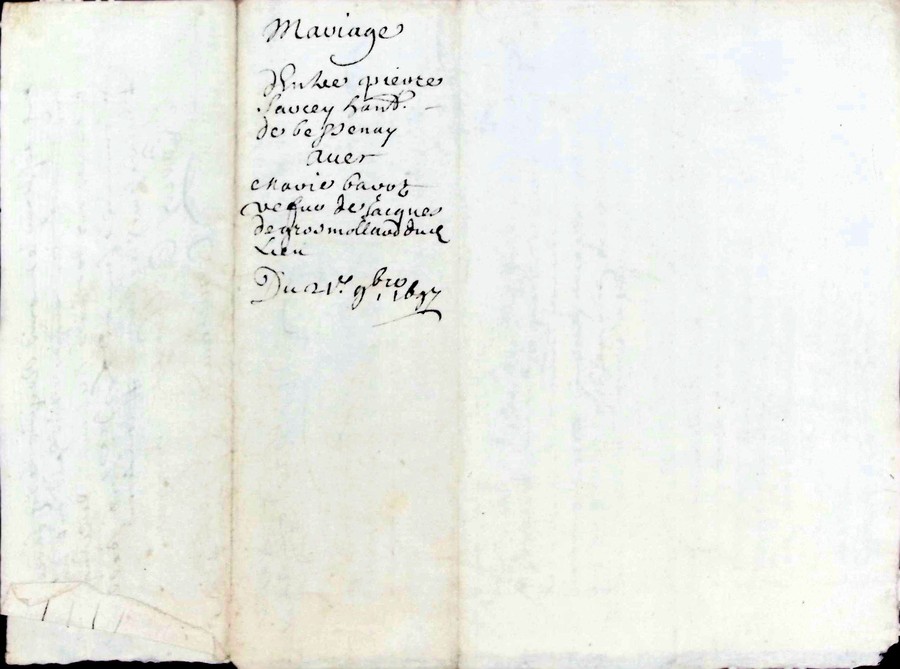 Mariage
d'Entre pierre
Farcey habt.
de bessenay
avec
Marie bavot
vefue de Jacques
de grosmollard dud.
Lieu
Du 21e. 9bre 1697